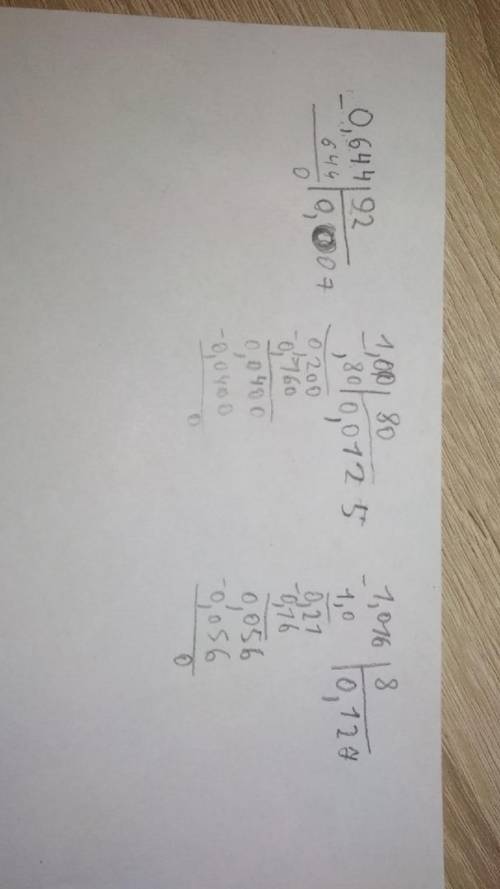 -0,644|92
644|0,007
0
-1,00|80
,80|0,0125
0,200
-0,160
0,0400
-0,0400
0
-1,016|8
1,0|0,127
0,21
-0,16
0,056
-0,056
0